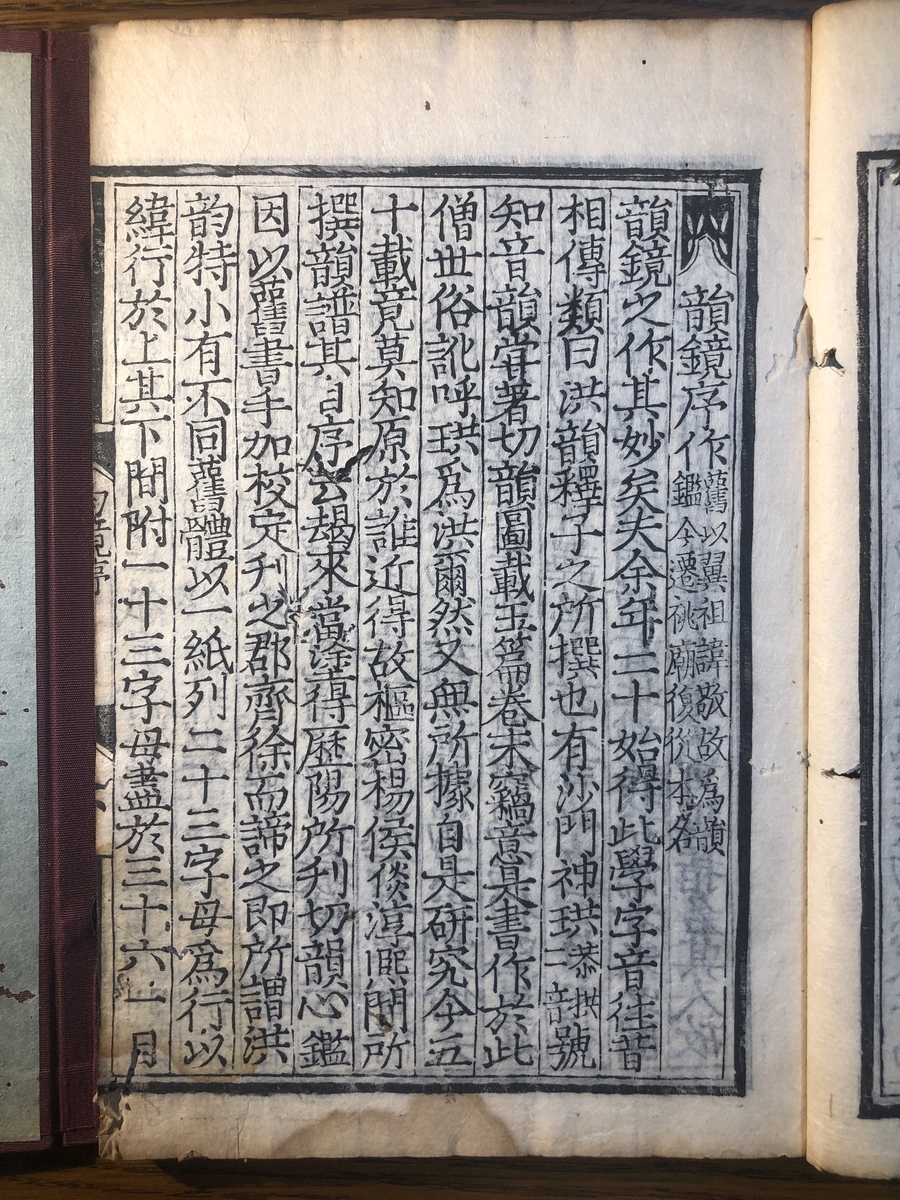 韻鏡序作 舊以翼祖諱敬故為韻鑑今遷祧廟復從本名
韻鏡之作其妙矣夫余年二十始得此學字音徃昔
相傳類曰洪韻釋子之所撰也有沙門神珙恭拱二音號
知音韻甞著切韻圖載玉篇卷末竊意是書作於此
僧世俗訛呼珙爲洪爾然又無所據自是研究今五
十載竟莫知原於誰近得故樞密楊侯倓淳熈間所
撰韻譜其自序云朅來當塗得歷陽所刋切韻心鑑
因以舊書手加校定刋之郡齊徐而諦之即所謂洪
韵特小有不同舊體以一紙列二十三字母爲行以
緯行於上其下間附一十三字母盡於三十六一目